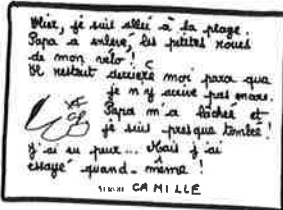 Mier, je suis allée à la plage.
Papa a enlevé, les petites roues
de mon velo !
Il restait derrière moi parce que
je n'y arrive pas encore.
Papa m'a lâchée et
je suis presque tombée !
J'ai eu peur... Mais j'ai
essayé quand-même !
CAMILLE